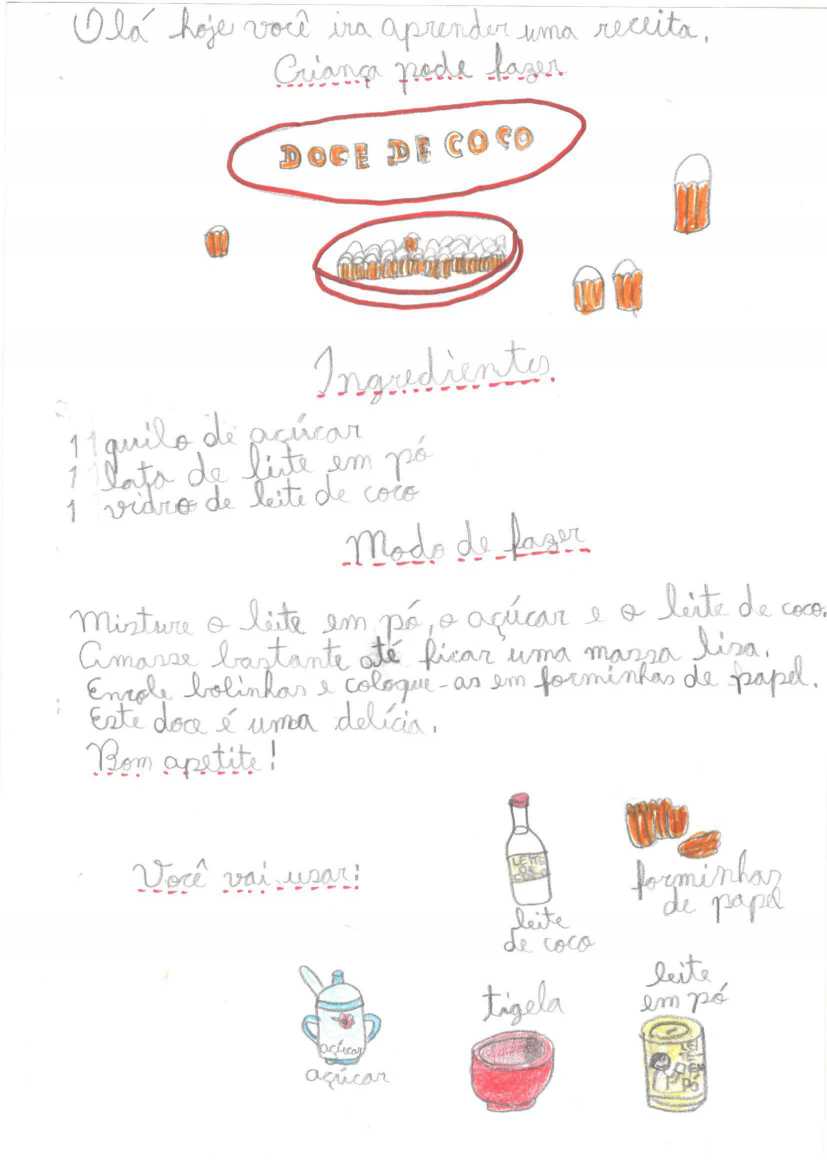 Olá hoje você ira aprender uma receita.
Criança pode fazer
DOCE DE COCO
Ingredientes
1 quilo de açúcar
1 lata de leite em pó
1 vidro de leite de coco
Modo de fazer
Misture o leite em pó, o açúcar e o leite de coco.
Amasse bastante até ficar uma massa lisa.
Enrole bolinhas e coloque-as em forminhas de papel.
Este doce é uma delícia.
Bom apetite!
Você vai usar:
LEITE
DE
COCO
leite
de coco
forminhas
de papel
açúcar
açúcar
tigela
leite
em pó
LEI
TE
EM
PÓ